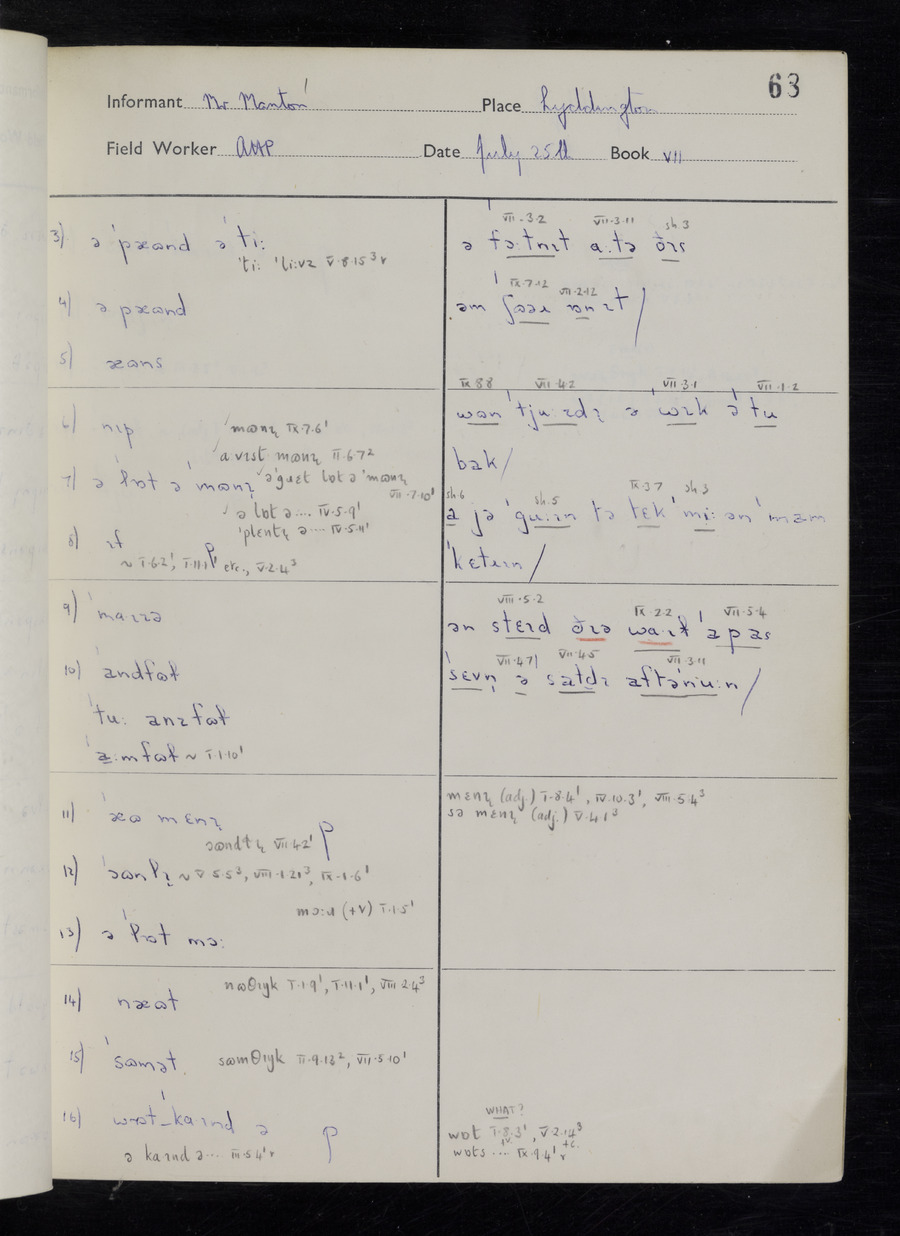 63
Informant Mr Manton Place Lyddington
Field Worker AHP Date July 25th Book VII
3) ə ˈpɹæɷnd ə ˈtiː
ˈtiː ˈliːvz V·8·15³ r
4) ə pæɷnd
5) æɷns
6) nɪp
mɷnɪ̨ IX·7·6¹
a vɪst mɷnɪ̨ II·6·7²
7) ə ˈlɒt ə ˈmɷnɪ̨ ə ˈguɛt lɒt ə ˈmɷnɪ̨ VII·7·10¹
ə lɒt ə.... IV·5·9¹
ˈplentɪ̨ ə.... IV·5·11¹
8) ɪf p
~ I·6·2¹, I·11·1¹ etc., V·2·4³
9) ˈmaːɪzə
10) ˈandfɷɫ
ˈtuː anzfɷɫ
ˈaːmfɷɫ ~ I·1·10¹
11) ˈæɷ mɛnɪ̨
ɔɷndlɪ̨ VII·4·2¹ p
12) ˈɔɷnlɪ̨ ~ V·5·5³, VIII·1·21³, IX·1·6¹
mɔːɹ (+V) I·1·5¹
13) ə ˈlɒt mɔː
14) næɷt nɷθɪŋk I·1·9¹, I·11·1¹, VIII·2·4³
15) ˈsɷmət sɷmθɪŋk II·9·13², VII·5·10¹
16) wɒt‿kaːɪnd ə p
ə kaɪnd ə.... III·5·4¹ r
VII·3·2 VII·3·11 sh.3
ə fəːtnɪt aːtə ðɪs
IX·7·12 VII·2·12
əm ʃɷəɹ ɒnɪt /
IX·8·8 VII·4·2 VII·3·1 VII·1·2
wɒn ˈtjuːzdɪ̨ ə ˈwɪk ə ˈtu
bak /
sh.6 sh.5 IX·3·7 sh.3
a jə ˈguːɪn tə tɛk ˈmiː ən ˈmam
ˈkɛtɹɪn /
VIII·5·2 IX·2·2 VII·5·4
ən stɛɪd ðɪə waːɪɫ ˈapas
VII·4·7 VII·4·5 VII·3·11
ˈsɛvn̩ ə satdɪ aftənuːn /
mɛnɪ̨ (adj.) I·8·4¹, IV·10·3¹, VIII·5·4³
sə mɛnɪ̨ (adj.) V·4·1³
WHAT?
wɒt I·8·3¹ +V, V·2·14³ +C.
wɒts .... IX·9·4¹ r